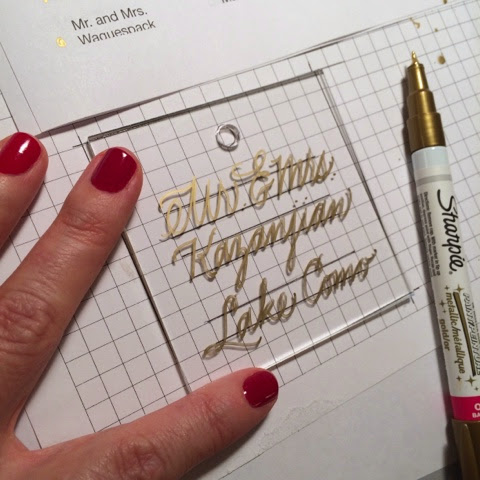 Mr. and Mrs.
Waguespack
Mr & Mrs.
Kazanjian
Lake Como
Sharpie
metallic/métallique